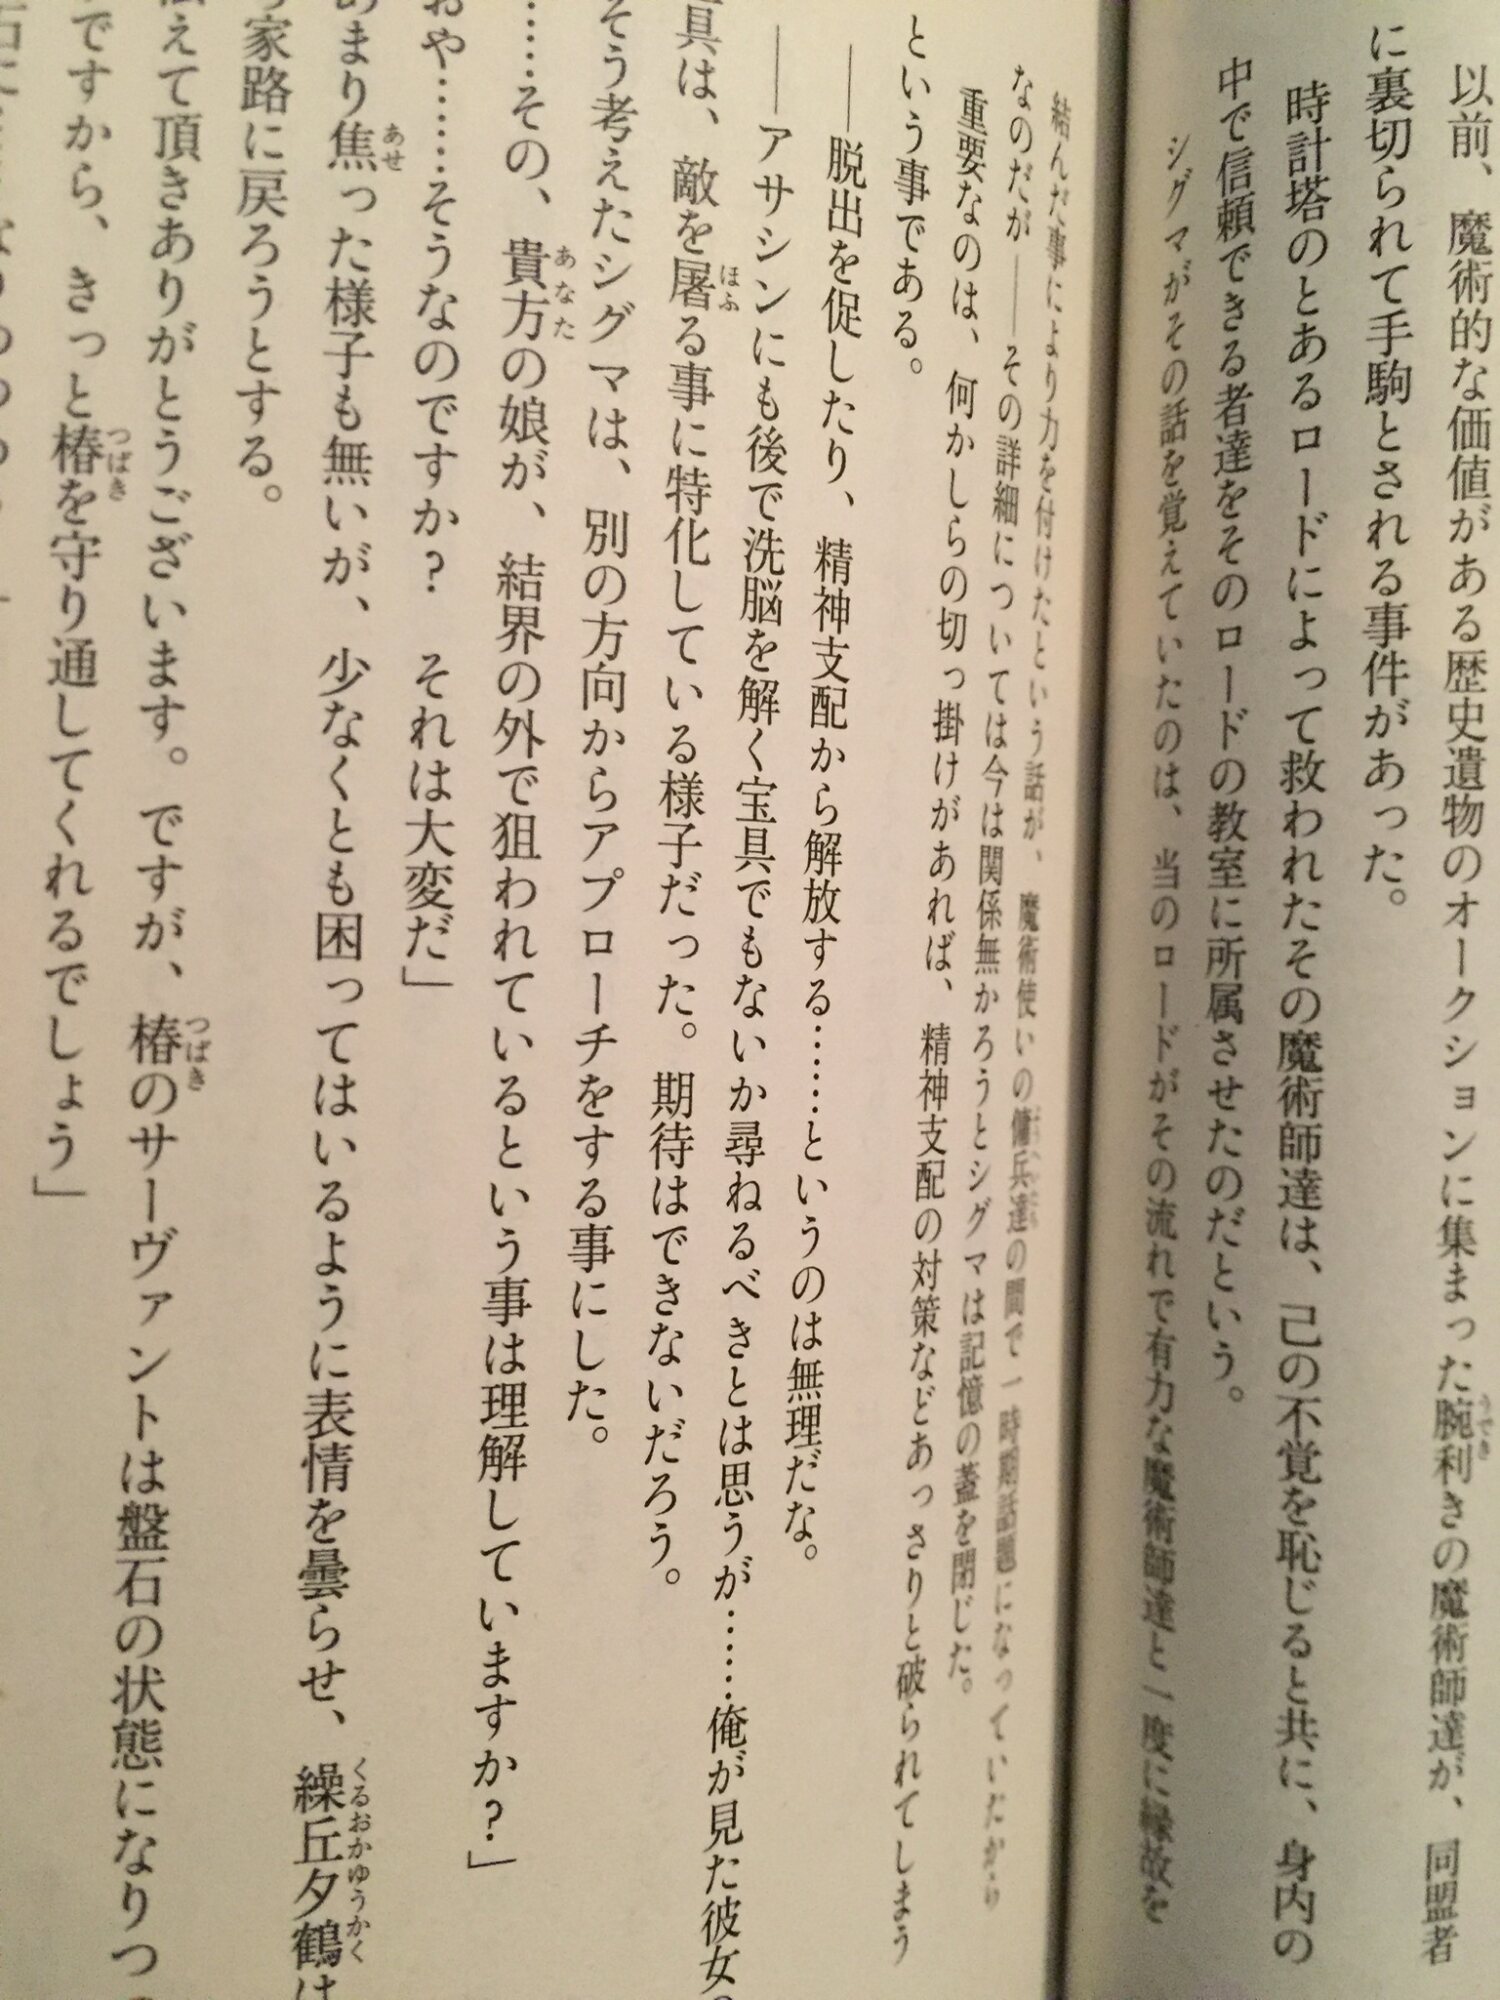 以前、魔術的な価値がある歴史遺物のオークションに集まった腕利きの魔術師達が、同盟者
に裏切られて手駒とされる事件があった。
時計塔のとあるロードによって救われたその魔術師達は、己の不覚を恥じると共に、身内の
中で信頼できる者達をそのロードの教室に所属させたのだという。
シグマがその話を覚えていたのは、当のロードがその流れで有力な魔術師達と一度に縁故を
結んだ事により力を付けたという話が、魔術使いの傭兵達の間で一時期話題になっていたから
なのだが――その詳細については今は関係無かろうとシグマは記憶の蓋を閉じた。
重要なのは、何かしらの切っ掛けがあれば、精神支配の対策などあっさりと破られてしまう
という事である。
――脱出を促したり、精神支配から解放する……というのは無理だな。
――アサシンにも後で洗脳を解く宝具でもないか尋ねるべきとは思うが……俺が見た彼女の
具は、敵を屠る事に特化している様子だった。期待はできないだろう。
そう考えたシグマは、別の方向からアプローチをする事にした。
……その、貴方の娘が、結界の外で狙われているという事は理解していますか?」
おや……そうなのですか? それは大変だ」
あまり焦った様子も無いが、少なくとも困ってはいるように表情を曇らせ、繰丘夕鶴は
家路に戻ろうとする。
伝えて頂きありがとうございます。ですが、椿のサーヴァントは盤石の状態になりつ
ですから、きっと椿を守り通してくれるでしょう」